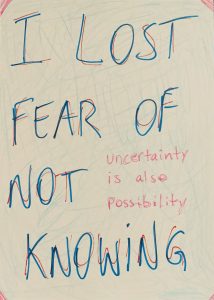 I LOST
FEAR OF
NOT
uncertainty
is also
possibility
KNOWING